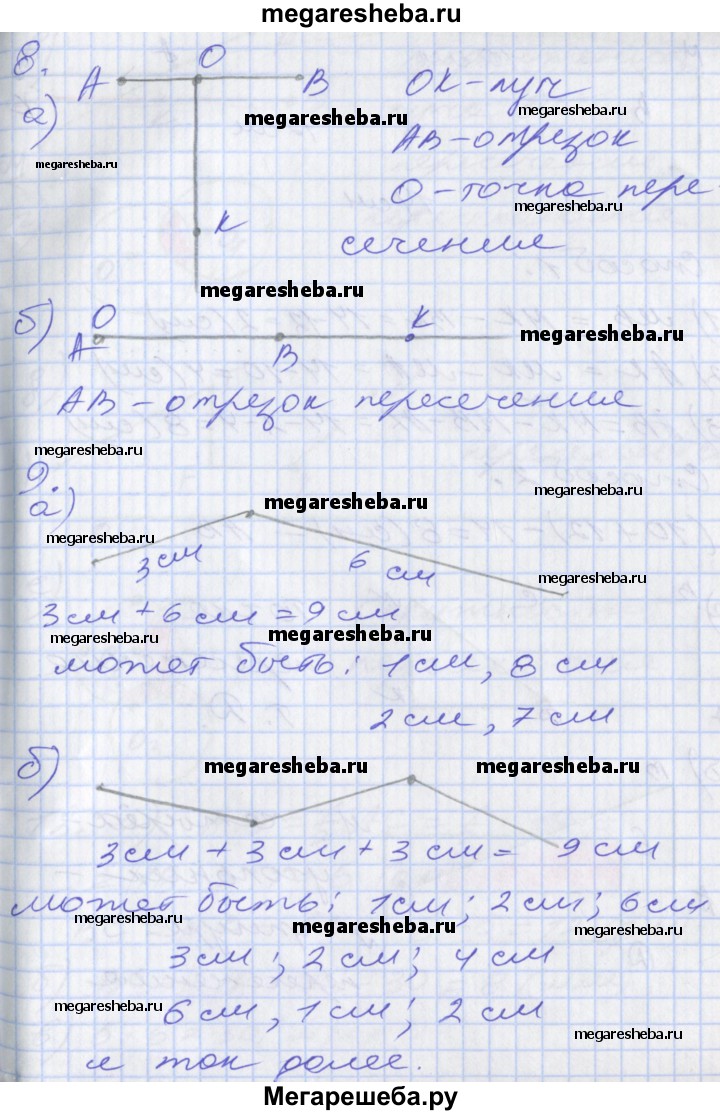 megaresheba.ru
8.
A O B OK-луч
megaresheba.ru
megaresheba.ru
а) AB-отрезок
megaresheba.ru
O-точка пере-
megaresheba.ru
K сечение
megaresheba.ru
б) O K
megaresheba.ru
A B
AB-отрезок пересечение
megaresheba.ru
9.
megaresheba.ru
а) megaresheba.ru
megaresheba.ru
3 см 6 см
megaresheba.ru
3 см + 6 см = 9 см
megaresheba.ru
megaresheba.ru
может быть: 1 см, 8 см
2 см, 7 см
б) megaresheba.ru megaresheba.ru
3 см + 3 см + 3 см = 9 см
может быть: 1 см; 2 см; 6 см
megaresheba.ru
megaresheba.ru
megaresheba.ru
3 см; 2 см; 4 см
megaresheba.ru
6 см, 1 см; 2 см
megaresheba.ru
и ток ролее.
Мегарешеба.ру